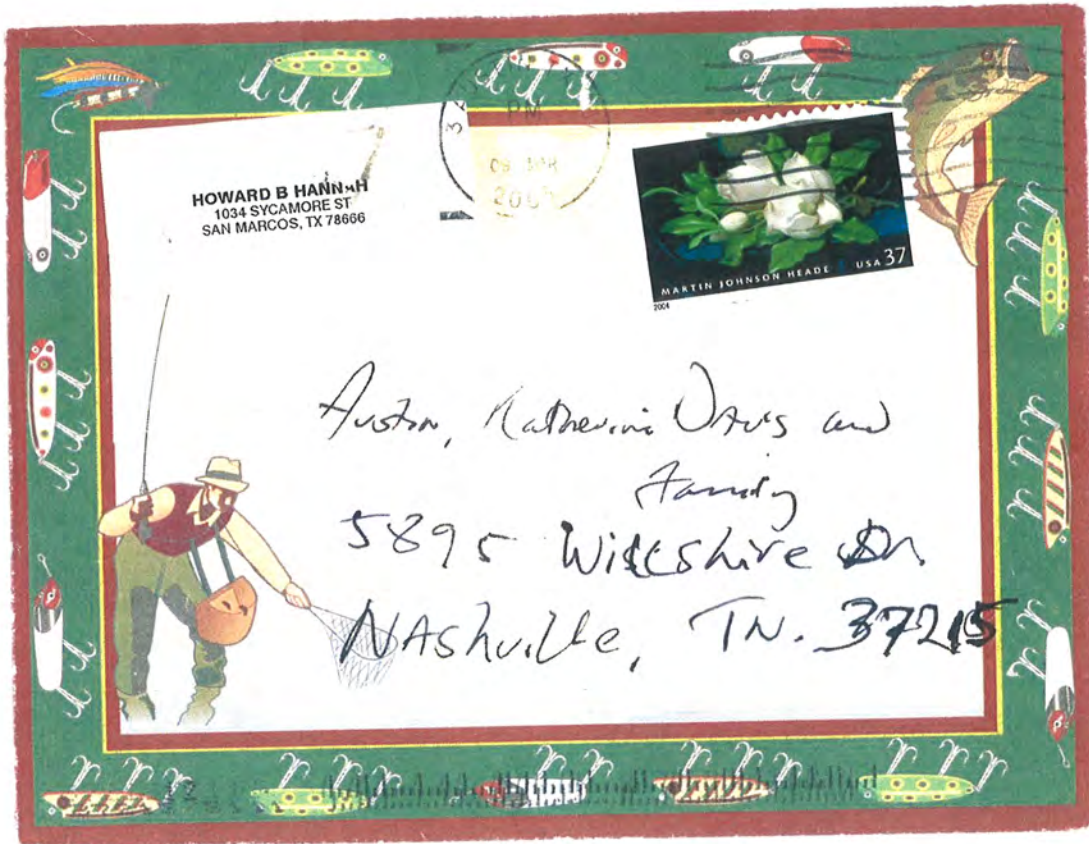 HOWARD B HANNAH
1034 SYCAMORE ST
SAN MARCOS, TX 78666
PM
MARTIN JOHNSON HEADE USA 37
2004
Austin, Katherine Davis and
Family
5895 Willshire Dr.
NAShville, TN. 37215